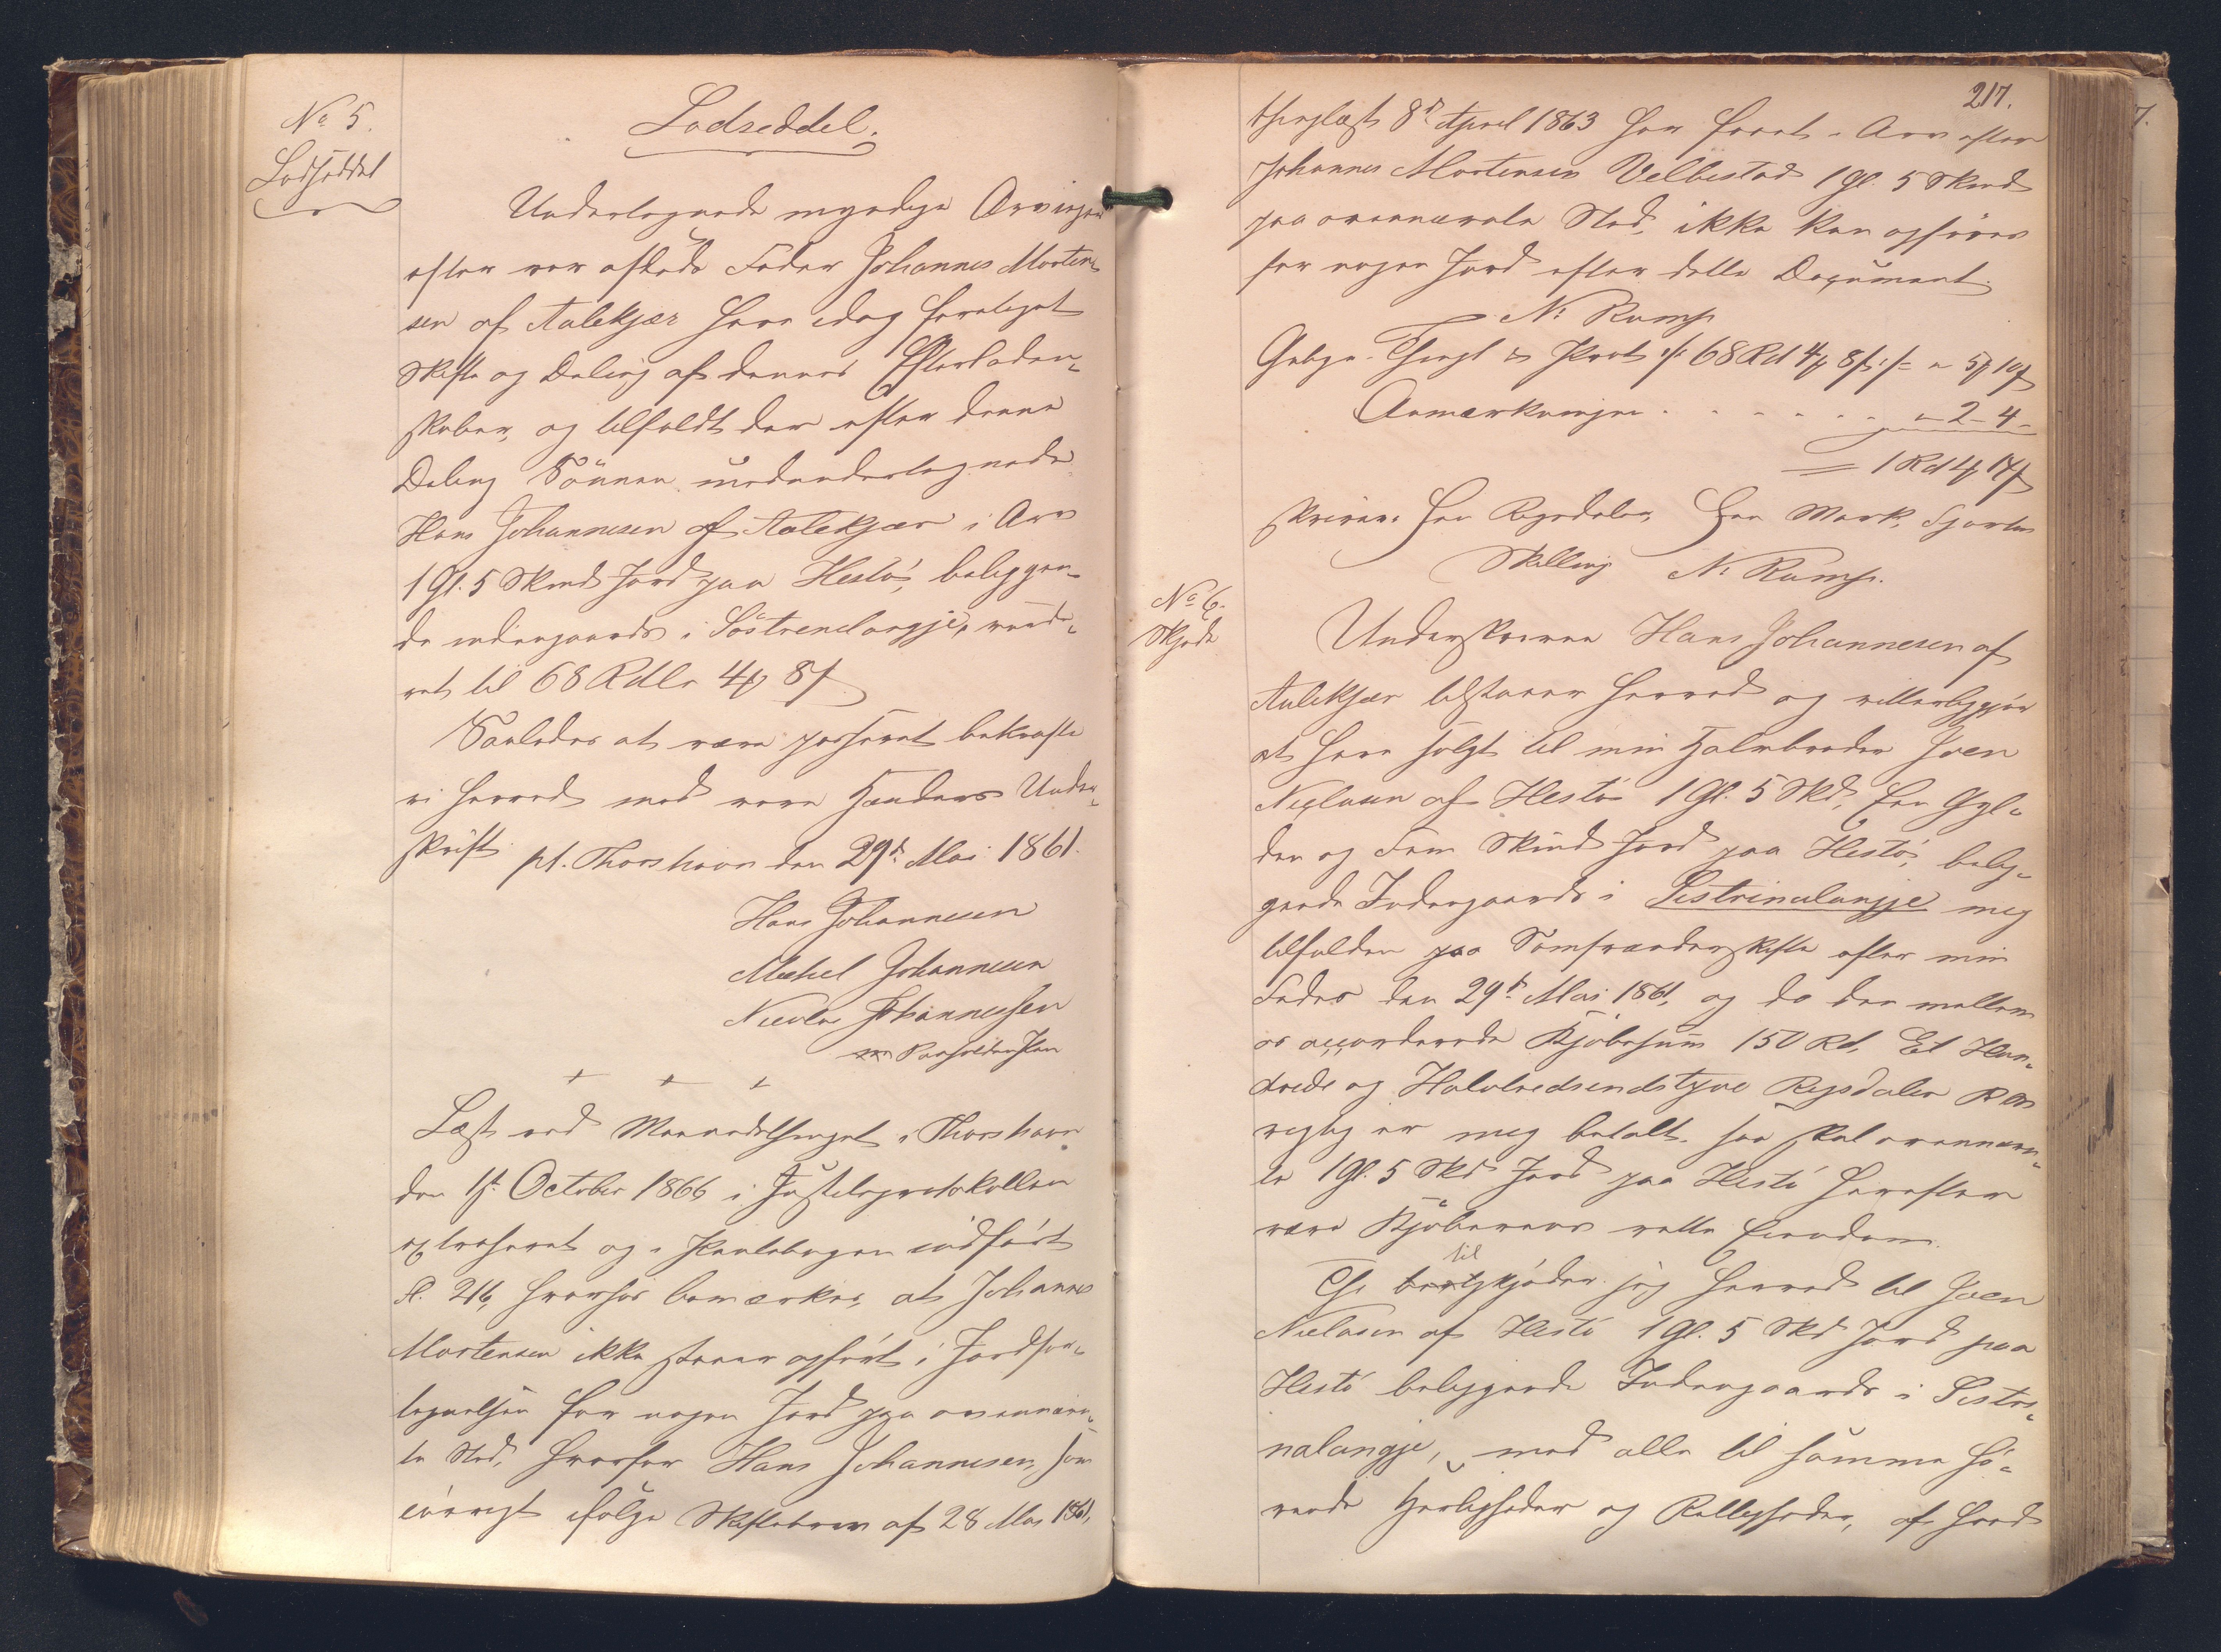 No 5.
Lodseddel
Lodseddel.
Undertegnede myndige Arvinger
efter vor afdøde Fader Johannes Morten-
sen af Aalekjær have idag foretaget
Skifte og Deling af dennes Efterladen-
skaber, og tilfaldt der efter denne
Deling Sönnen medundertegnede
Hans Johannesen af Aalekjær i Arv
1 Gl. 5 Skind Jord paa Hestö, beliggen-
de indengaards i Söstrenelangje, vurde-
ret til 68 Rdlr 4 ß 8 ß
Saaledes at være passeret bekræfte
vi herved med vore Hænders Under-
skrift. pt. Thorshavn den 29de Mai 1861.
Hans Johannesen
Michel Johannesen
Nicola Johannesen
m paaholden Pen
+ + +
Læst ved Maanedsthinget i Thorshavn
den 1ste October 1866, i Justitsprotokollen
extraheret og i Pantebogen indført
Fl. 216, hvorhos bemærkes, at Johannes
Mortensen ikke staaer opført i Jordfor-
tegnelsen for nogen Jord paa ovennævn-
te Sted, hvorfor Hans Johannesen, som
iövrigt ifølge Skiftebrev af 28 Mai 1861,
217.
thinglæst 8de April 1863 har faaet i Arv efter
Johannes Mortensen Velbestad 1 Gl. 5 Skind
paa ovennævnte Sted, ikke kan opføres
for nogen Jord efter dette Document.
N: Rump
Gebyr. Thingl & Prot ./. 68 Rd 4 ß 8 ß ./. = " 5 ß 10 ß
Anmærkningen . . . . . . " 2 - 4 -
= 1 Rd 4 17 ß
skriver Een Rigsdaler, Een Mark, Sjorten
Skilling N: Rump.
No 6.
Skjøde
Underskrevne Hans Johannesen af
Aalekjær tilstaaer herved og vitterliggjör
at have solgt til min Halvbroder Joen
Nielsen af Hestö 1 Gl. 5 Skd, Een Gyl-
den og Fem Skind Jord paa Hestö, belig-
gende Indengaards i Sistrinalangje mig
tilfalden paa Samfrænderskifte efter min
Fader den 29de Mai 1861, og da den mellem
os accorderede Kjöbesum 150 Rd, Et Hun-
drede og Halvtredsindstyve Rigsdaler R M
rigtig er mig betalt, saa skal ovennævn-
te 1 Gl. 5 Skd Jord paa Hestö herefter
være Kjöberens rette Eiendom.
til
Thi bortskjöder jeg herved til Joen
Nielsen af Hestö 1 Gl. 5 Skd Jord paa
Hestö beliggende Indengaards i Sistri-
nalangje, med alle til samme hö-
rende Herligheder og Rettigheder, af hvad